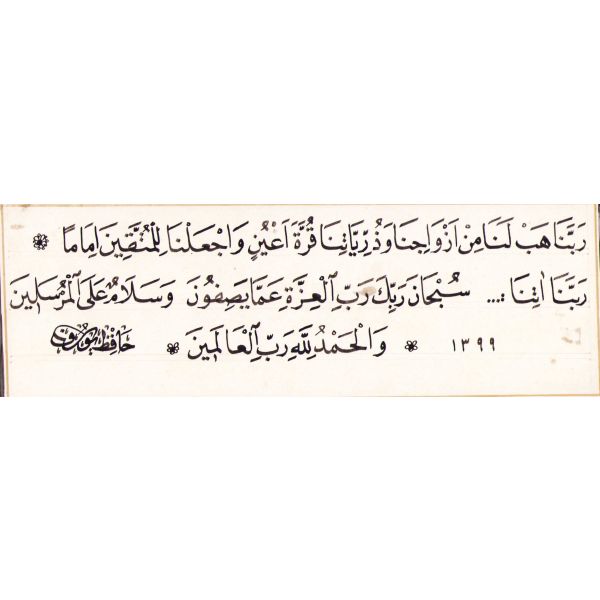 رَبَّنَا هَبْ لَنَا مِنْ اَزْوَاجِنَا وَذُرِّيَّاتِنَا قُرَّةَ اَعْيُنٍ وَاجْعَلْنَا لِلْمُتَّقِينَ اِمَامًا
رَبَّنَا اٰتِنَا ... سُبْحَانَ رَبِّكَ رَبِّ الْعِزَّةِ عَمَّا يَصِفُونَ وَسَلَامٌ عَلَى الْمُرْسَلِينَ
١٣٩٩ وَالْحَمْدُ لِلّٰهِ رَبِّ الْعَالَمِينَ حَافِظ